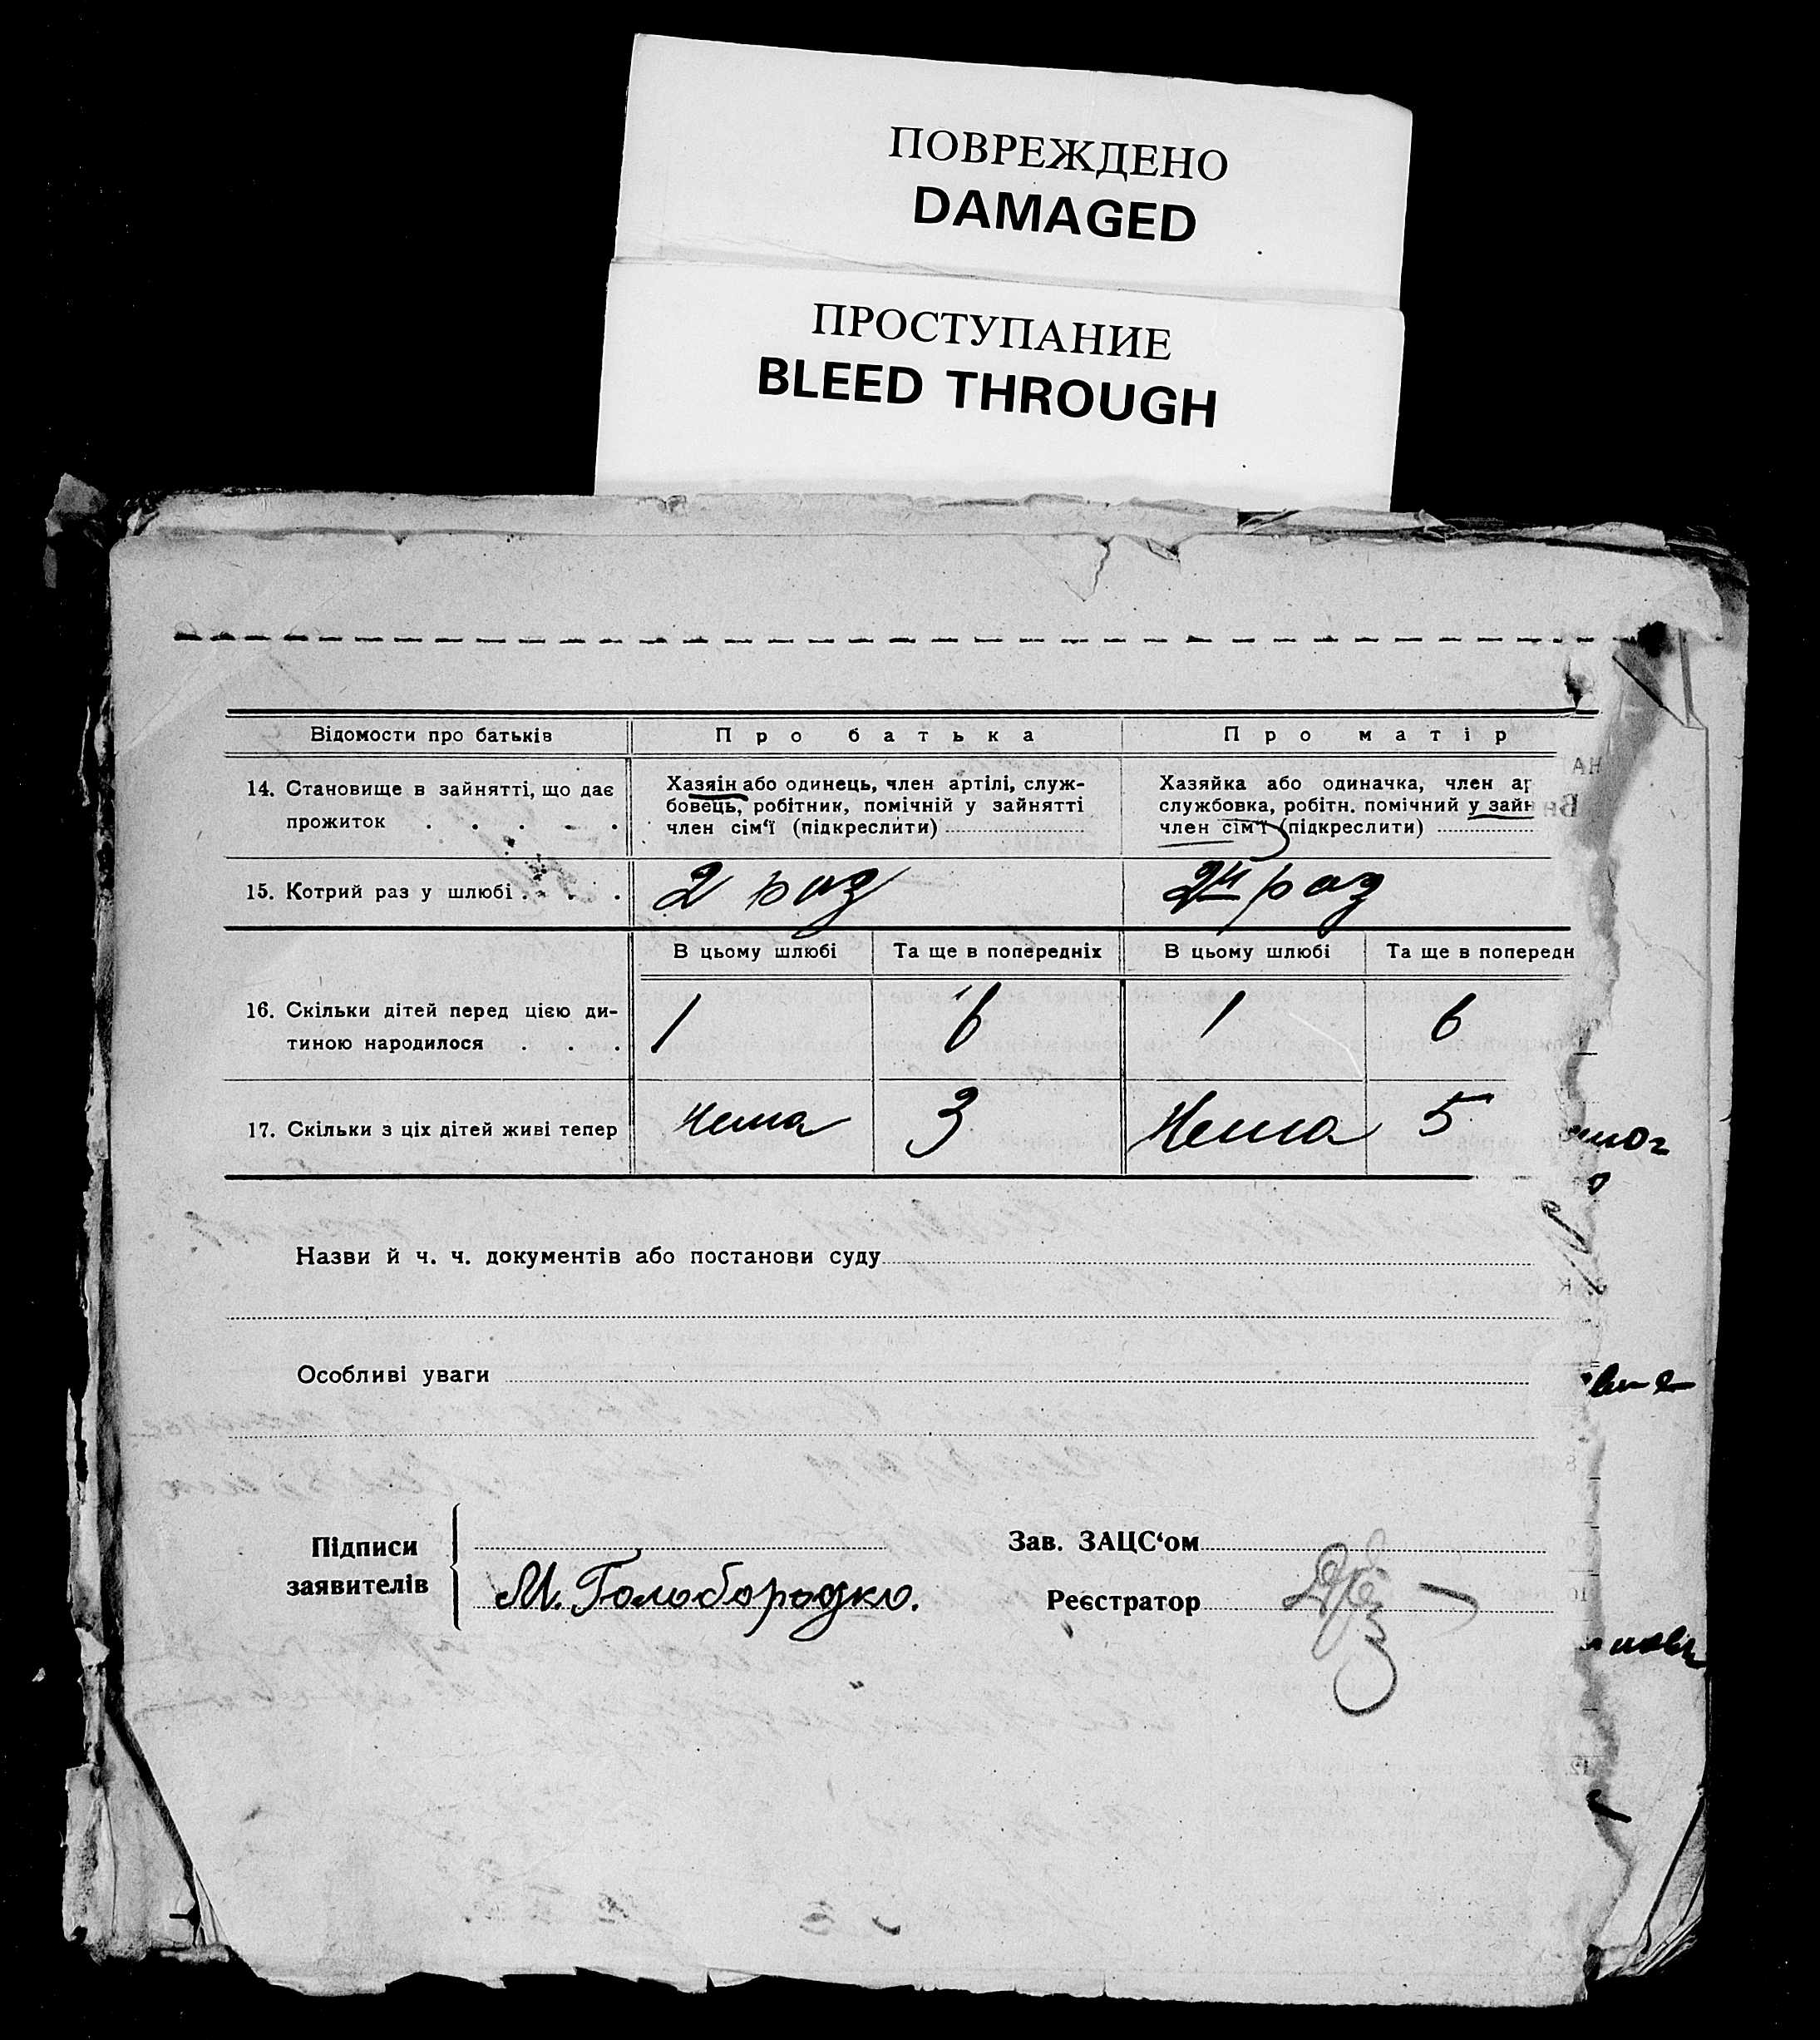 ПОВРЕЖДЕНО
DAMAGED
ПРОСТУПАНИЕ
BLEED THROUGH
Відомости про батьків
Про батька
Про матір
14. Становище в зайнятті, що дає
прожиток . . . . .
Хазяін або одинець, член артілі, служ-
бовець, робітник, помічній у зайнятті
член сім‘ї (підкреслити)
Хазяйка або одиначка, член ар
службовка, робітн. помічний у зайн
член сім‘ї (підкреслити)
15. Котрий раз у шлюбі . . . .
2 раз
2й раз
В цьому шлюбі
Та ще в попередніх
В цьому шлюбі
Та ще в попередн
16. Скільки дітей перед цією ди-
тиною народилося . . .
1
6
1
6
17. Скільки з ціх дітей живі тепер
Нема
3
Нема
5
Назви й ч. ч. документів або постанови суду
Особливі уваги
Підписи
заявителів
М. Голобородко.
Зав. ЗАЦС‘ом
Реєстратор